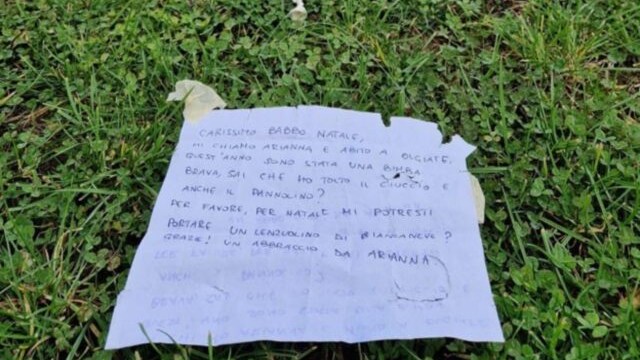 CARISSIMO BABBO NATALE,
MI CHIAMO ARIANNA E ABITO A OLGIATE.
QUEST'ANNO SONO STATA UNA BIMBA
BRAVA, SAI CHE HO TOLTO IL CIUCCIO E
ANCHE IL PANNOLINO?
PER FAVORE, PER NATALE MI POTRESTI
PORTARE UN LENZUOLINO DI BIANCANEVE?
GRAZIE! UN ABBRACCIO, DA ARIANNA